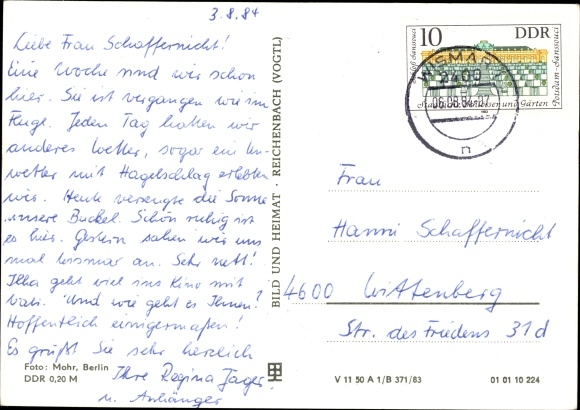 3.8.84
Liebe Frau Schaffernicht!
Eine Woche sind wir schon
hier. Sie ist vergangen wie im
Fluge. Jeden Tag hatten wir
anderes Wetter, sogar ein Un-
wetter mit Hagelschlag erlebten
wir. Heute versengte die Sonne
unsere Buckel. Schön ruhig ist
es hier. Gestern sahen wir uns
mal Wismar an. Sehr nett!
Ilka geht viel ins Kino mit
Vati. Und wie geht es Ihnen?
Hoffentlich einigermaßen!
Es grüßt Sie sehr herzlich
Ihre Regina Jager
u. Anhänger
Foto: Mohr, Berlin
DDR 0,20 M
BILD UND HEIMAT · REICHENBACH (VOGTL)
10 DDR
Schloß Sanssouci
Potsdam-Sanssouci
Staatliche Schlösser und Gärten
WISMAR
2400
06.08.84-07
n
Frau
Hanni Schaffernicht
4600 Wittenberg
Str. des Friedens 31d
V 11 50 A 1/B 371/83
01 01 10 224